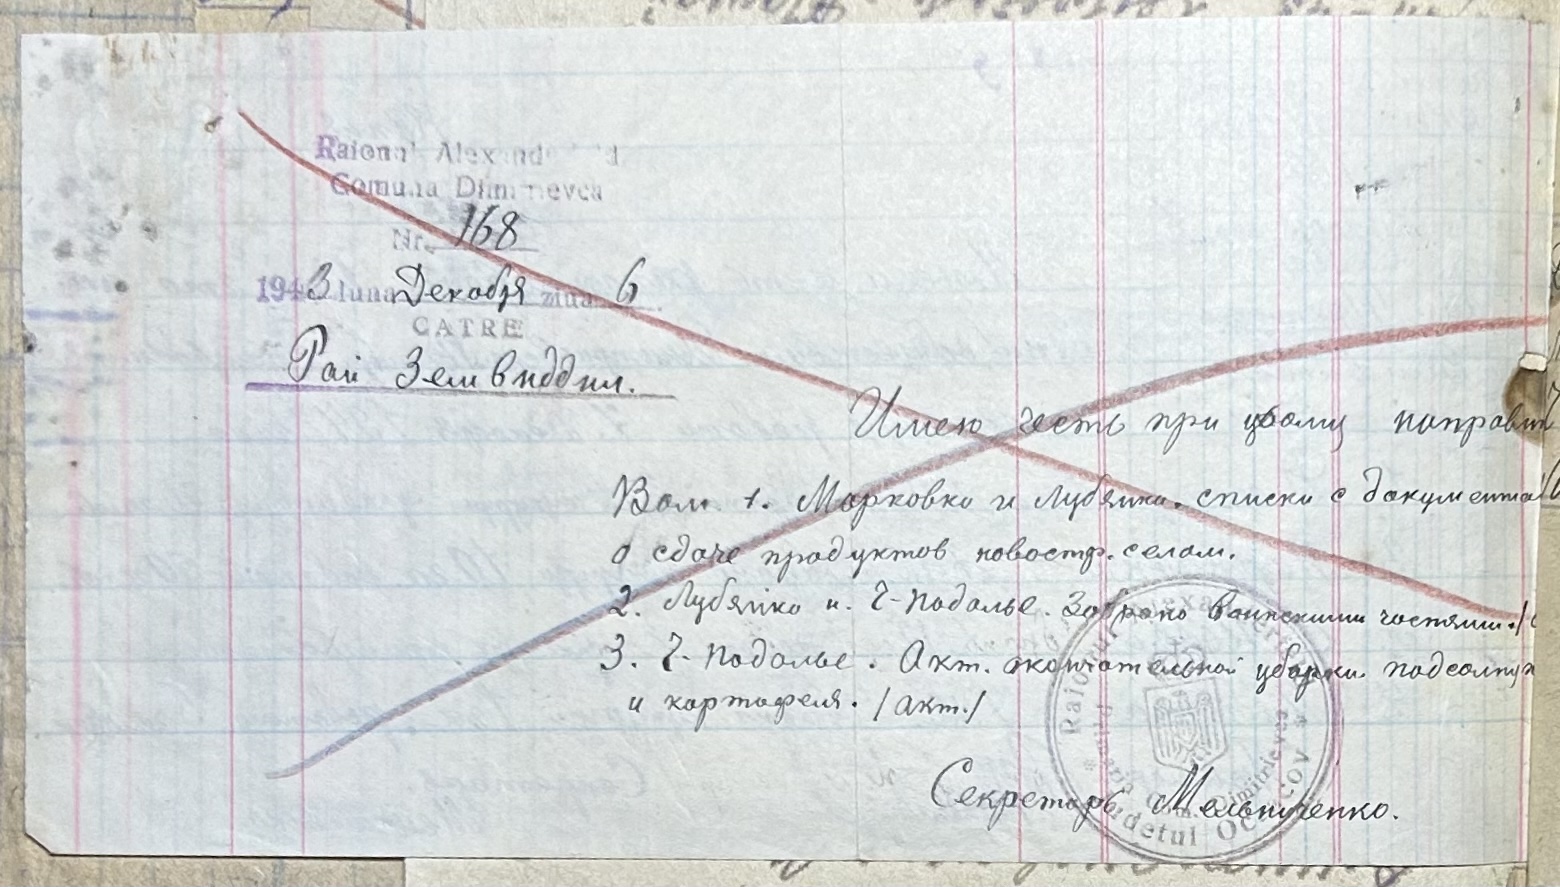 Raional Alexand
Comuna Dimitrievca
Nr. 168
1943 luna Декабря ziua 6
CATRE
РайЗемвиддил.
Имею честь при цьому направит
Вам 1. Марковка и Лубянка. списки с документа
о сдаче продуктов новостр. селам.
2. Лубянка и. Г-Подолье. Забрано воинскими частями.
3. Г-Подолье. Акт. окончательной уборки. подсолнух
и картофеля. /акт./
Секретарь Мельниченко.
Raionul Alexa
Dimitrievca
Judetul Oceacov